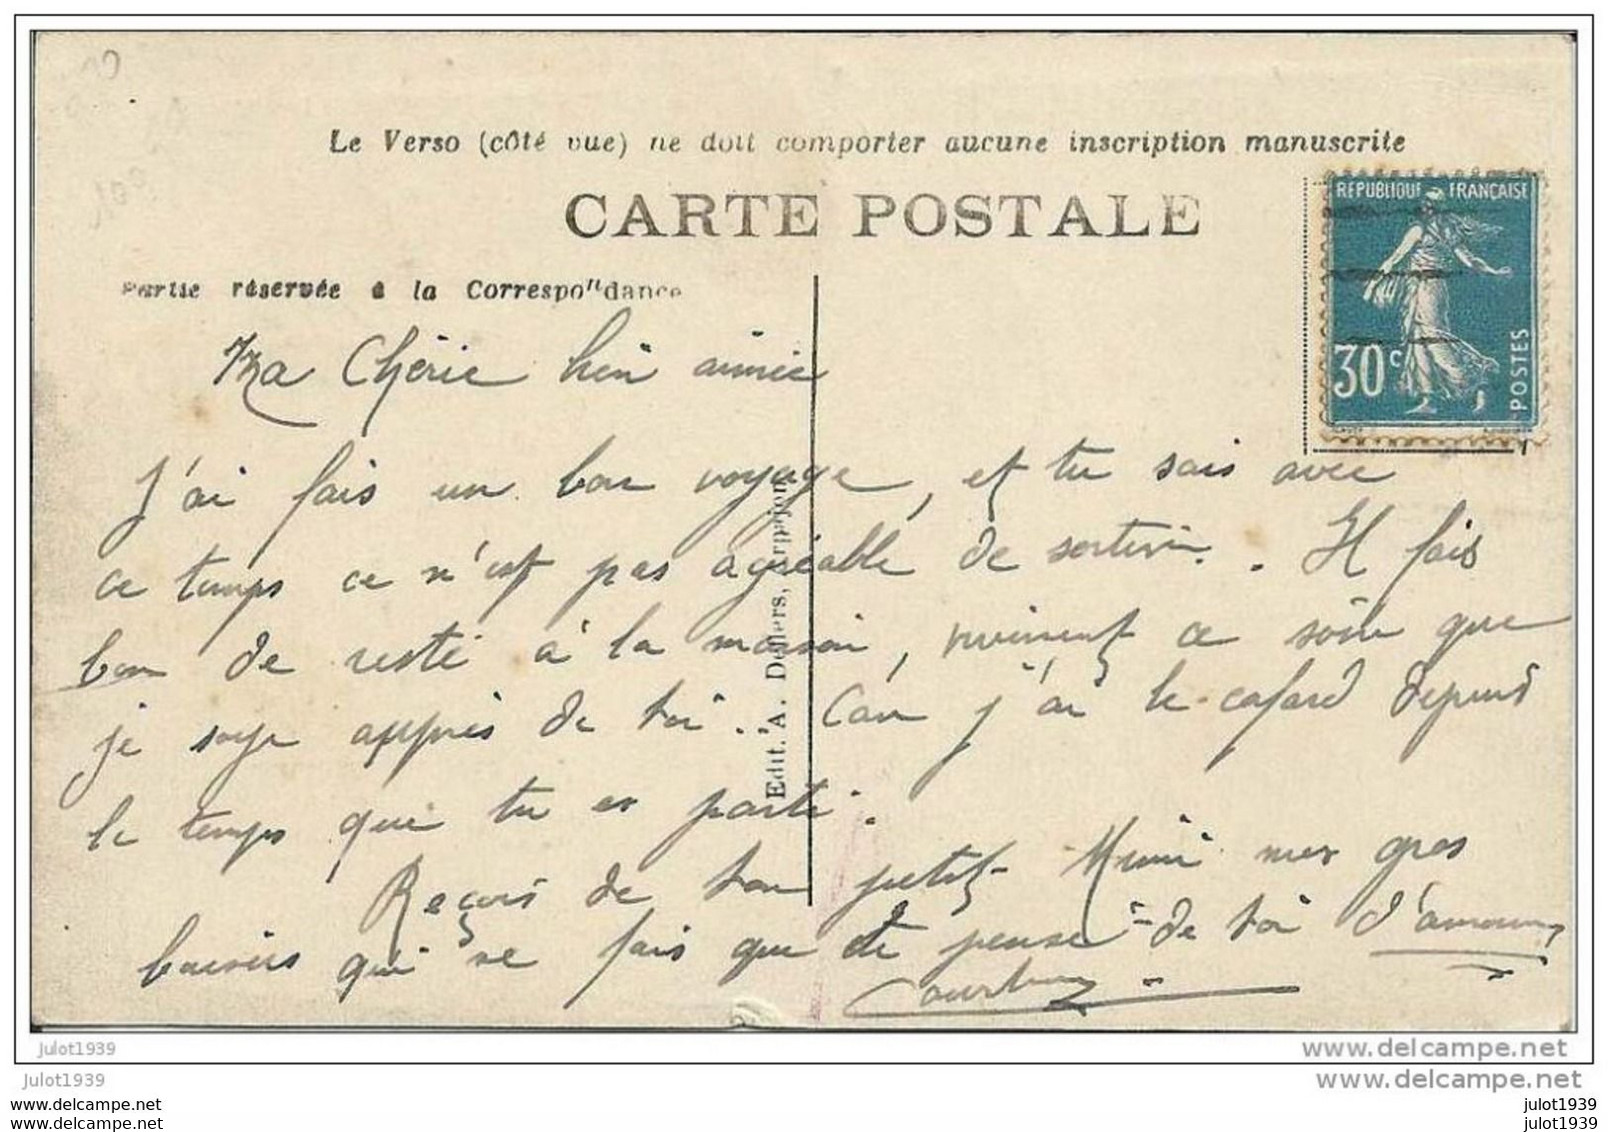 Le Verso (côté vue) ne doit comporter aucune inscription manuscrite
CARTE POSTALE
REPUBLIQUE FRANÇAISE
30c
POSTES
Partie réservée à la Correspondance
Ma Chérie bien aimée
J'ai fais un bon voyage, et tu sais avec
ce temps ce n'est pas agréable de sortir. Il fais
bon de resté à la maison, ce soir que
je soye apprés de toi. Car j'ai le cafard depuis
le temps que tu es parti.
Reçois de ton petit Mimi mes gros
baisers qui ne fais que de pensé de toi d'amour
Edit. A. Dellers, Arpajon
julot1939
julot1939
julot1939
julot1939
www.delcampe.net
www.delcampe.net
julot1939
julot1939
www.delcampe.com
www.delcampe.com